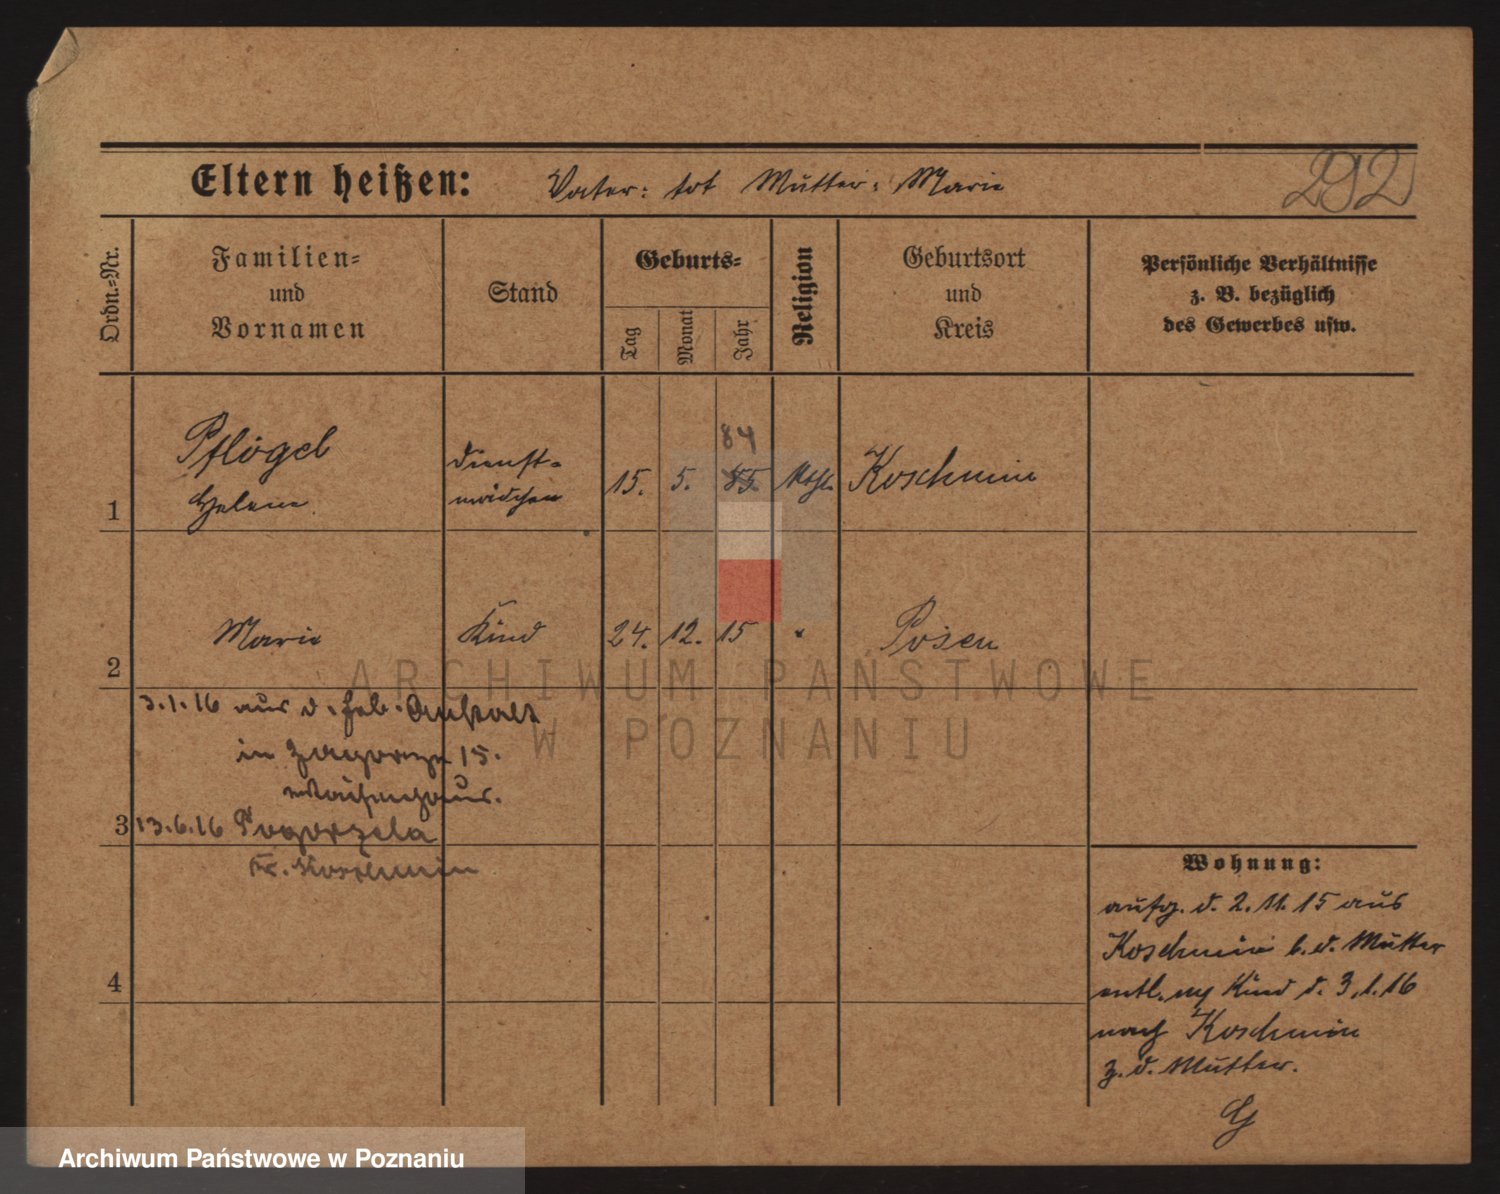 292
Eltern heißen: Vater: tot Mutter: Marie
Ordn.-Nr.
Familien-
und
Vornamen
Stand
Geburts-
Tag
Monat
Jahr
Religion
Geburtsort
und
Kreis
Persönliche Verhältnisse
z. B. bezüglich
des Gewerbes usw.
1
Pflögel
Helene
Dienst-
mädchen
15. 5. 85 84
Kathl.
Koschmin
2
Marie
Kind
24. 12. 15
"
Posen
3.1.16 aus d. Heb. Anstalt
in 15.
Waisenhaus.
3
13.6.16 Pogorzela
Kr. Koschmin
4
Wohnung:
aufg. d. 2. 11. 15 aus
Koschmin b. d. Mutter
entl. m Kind d. 3.1.16
nach Koschmin
z. d. Mutter.
G
ARCHIWUM PAŃSTWOWE
W POZNANIU
Archiwum Państwowe w Poznaniu